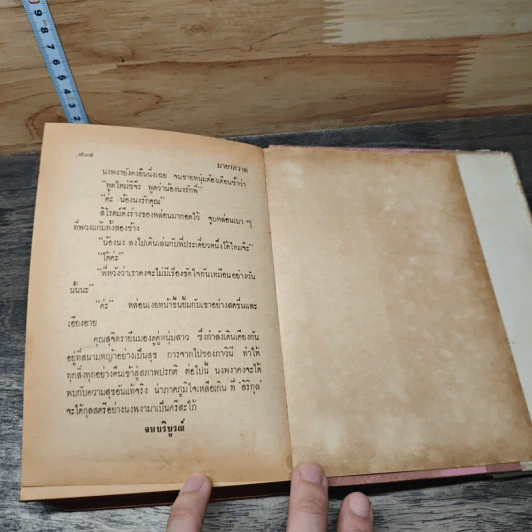 9 8 7 5 4 3 2
๔๓๕
มายาสวาท
นงพงายังคงยืนนิ่งเฉย จนชายหนุ่มต้องเตือนซ้ำว่า
"พูดใหม่ซิจ๊ะ พูดว่าน้องนงรักพี่"
"ค่ะ น้องนงรักคุณ"
สิโรตม์ดึงร่างของหล่อนมากอดไว้ จูบหล่อนเบา ๆ
ที่พวงแก้มทั้งสองข้าง
"น้องนง ลงไปเดินเล่นกับพี่ประเดี๋ยวหนึ่งได้ไหมจ๊ะ"
"ได้ค่ะ"
"พี่หวังว่าเราคงจะไม่มีเรื่องขัดใจกันเหมือนอย่างวัน
นั้นนะ"
"ค่ะ" หล่อนเงยหน้าขึ้นยิ้มกับเขาอย่างสดชื่นและ
เอียงอาย
คุณสุจิตรายืนมองดูคู่หนุ่มสาว ซึ่งกำลังเดินเคียงกัน
อยู่ที่สนามหญ้าอย่างเป็นสุข การจากไปของภาวินี ทำให้
ทุกสิ่งทุกอย่างคืนเข้าสู่สภาพปรกติ ต่อไปนี้ นงพงาคงจะได้
พบกับความสุขอันแท้จริง น่าภาคภูมิใจเหลือเกิน ที่ 'สิริกุล'
จะได้กุลสตรีอย่างนงพงามาเป็นศรีสะใภ้
จบบริบูรณ์